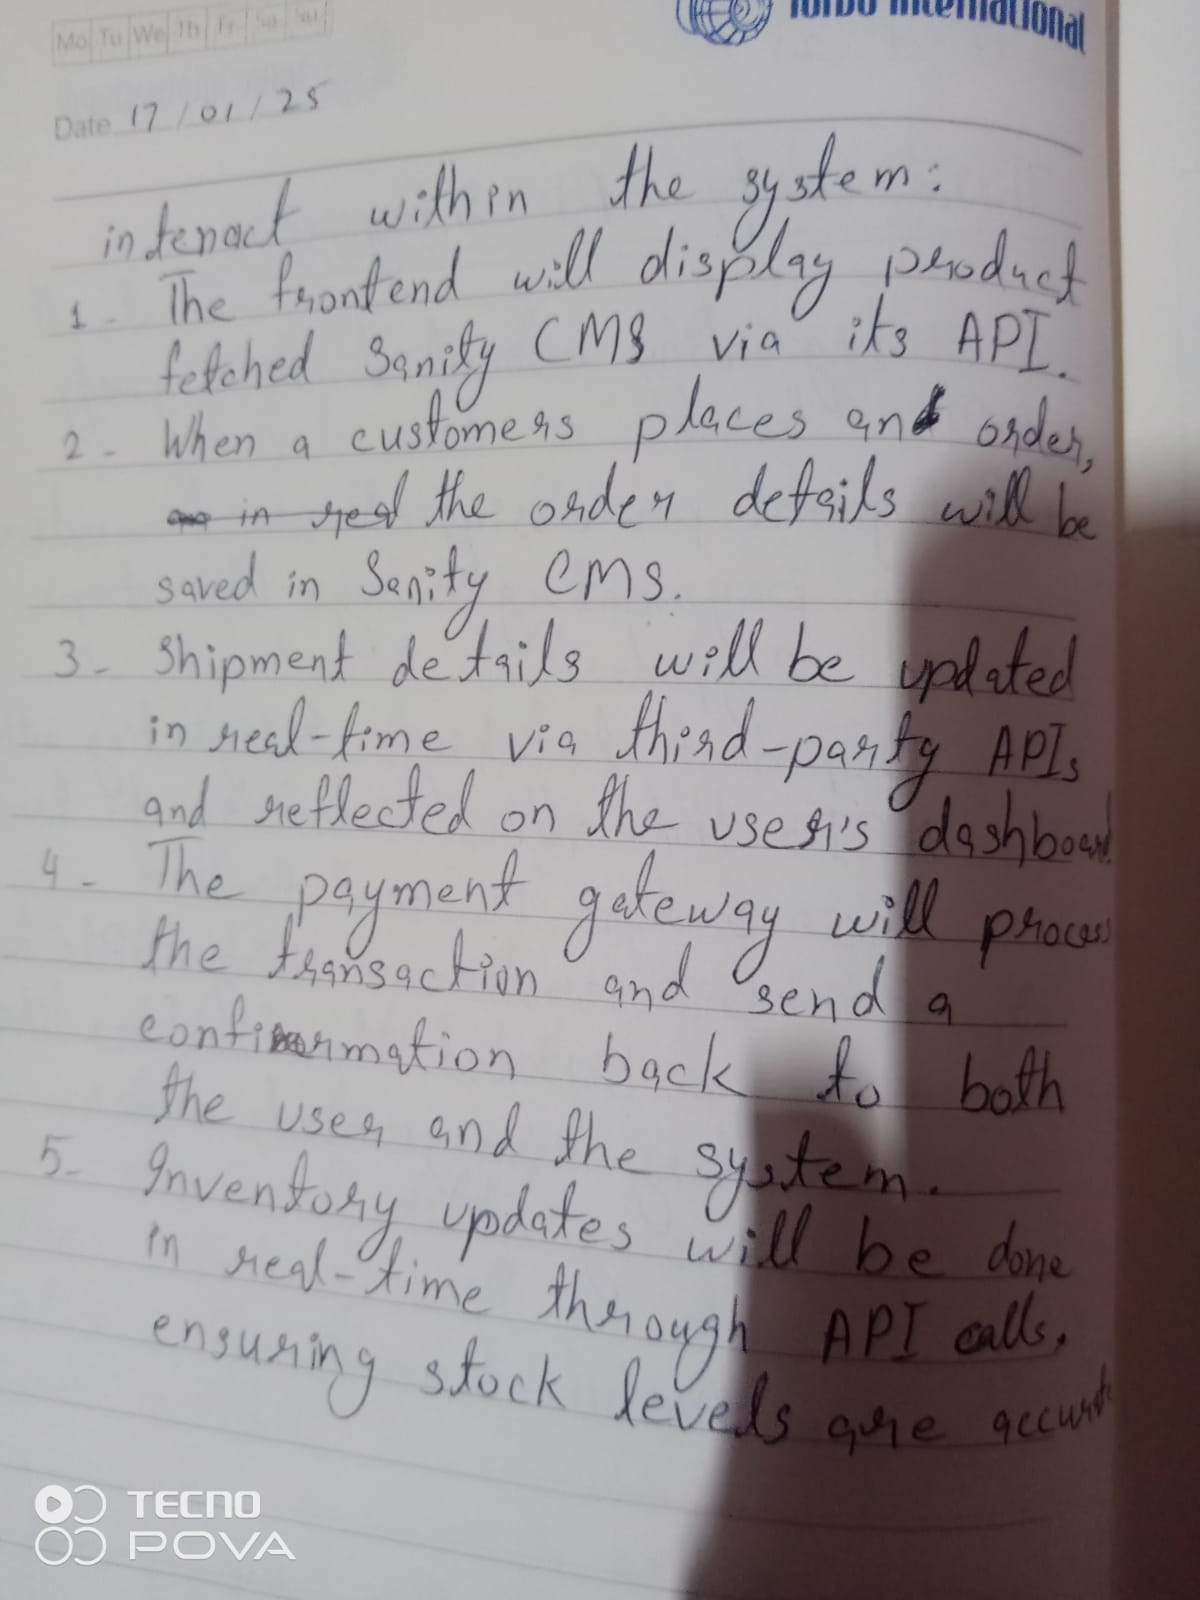 Mo Tu We Th Fr Sa Su
International
Date 17/01/25
interact within the system:
1- The frontend will display product
fetched Sanity CMS via its API.
2- When a customers places an order,
in real the order details will be
saved in Sanity CMS.
3- Shipment details will be updated
in real-time via third-party APIs
and reflected on the user's dashboard
4- The payment gateway will process
the transaction and send a
confirmation back to both
the user and the system.
5- Inventory updates will be done
in real-time through API calls,
ensuring stock levels are accurate
TECNO
POVA